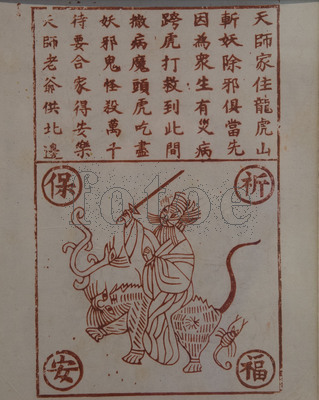 天師家住龍虎山
斬妖除邪俱當先
因為衆生有災病
跨虎打救到此間
撒病魔頭虎吃盡
妖邪鬼怪殺萬千
待要合家得安樂
天師老爺供北邊
祈福
保安
fotoe